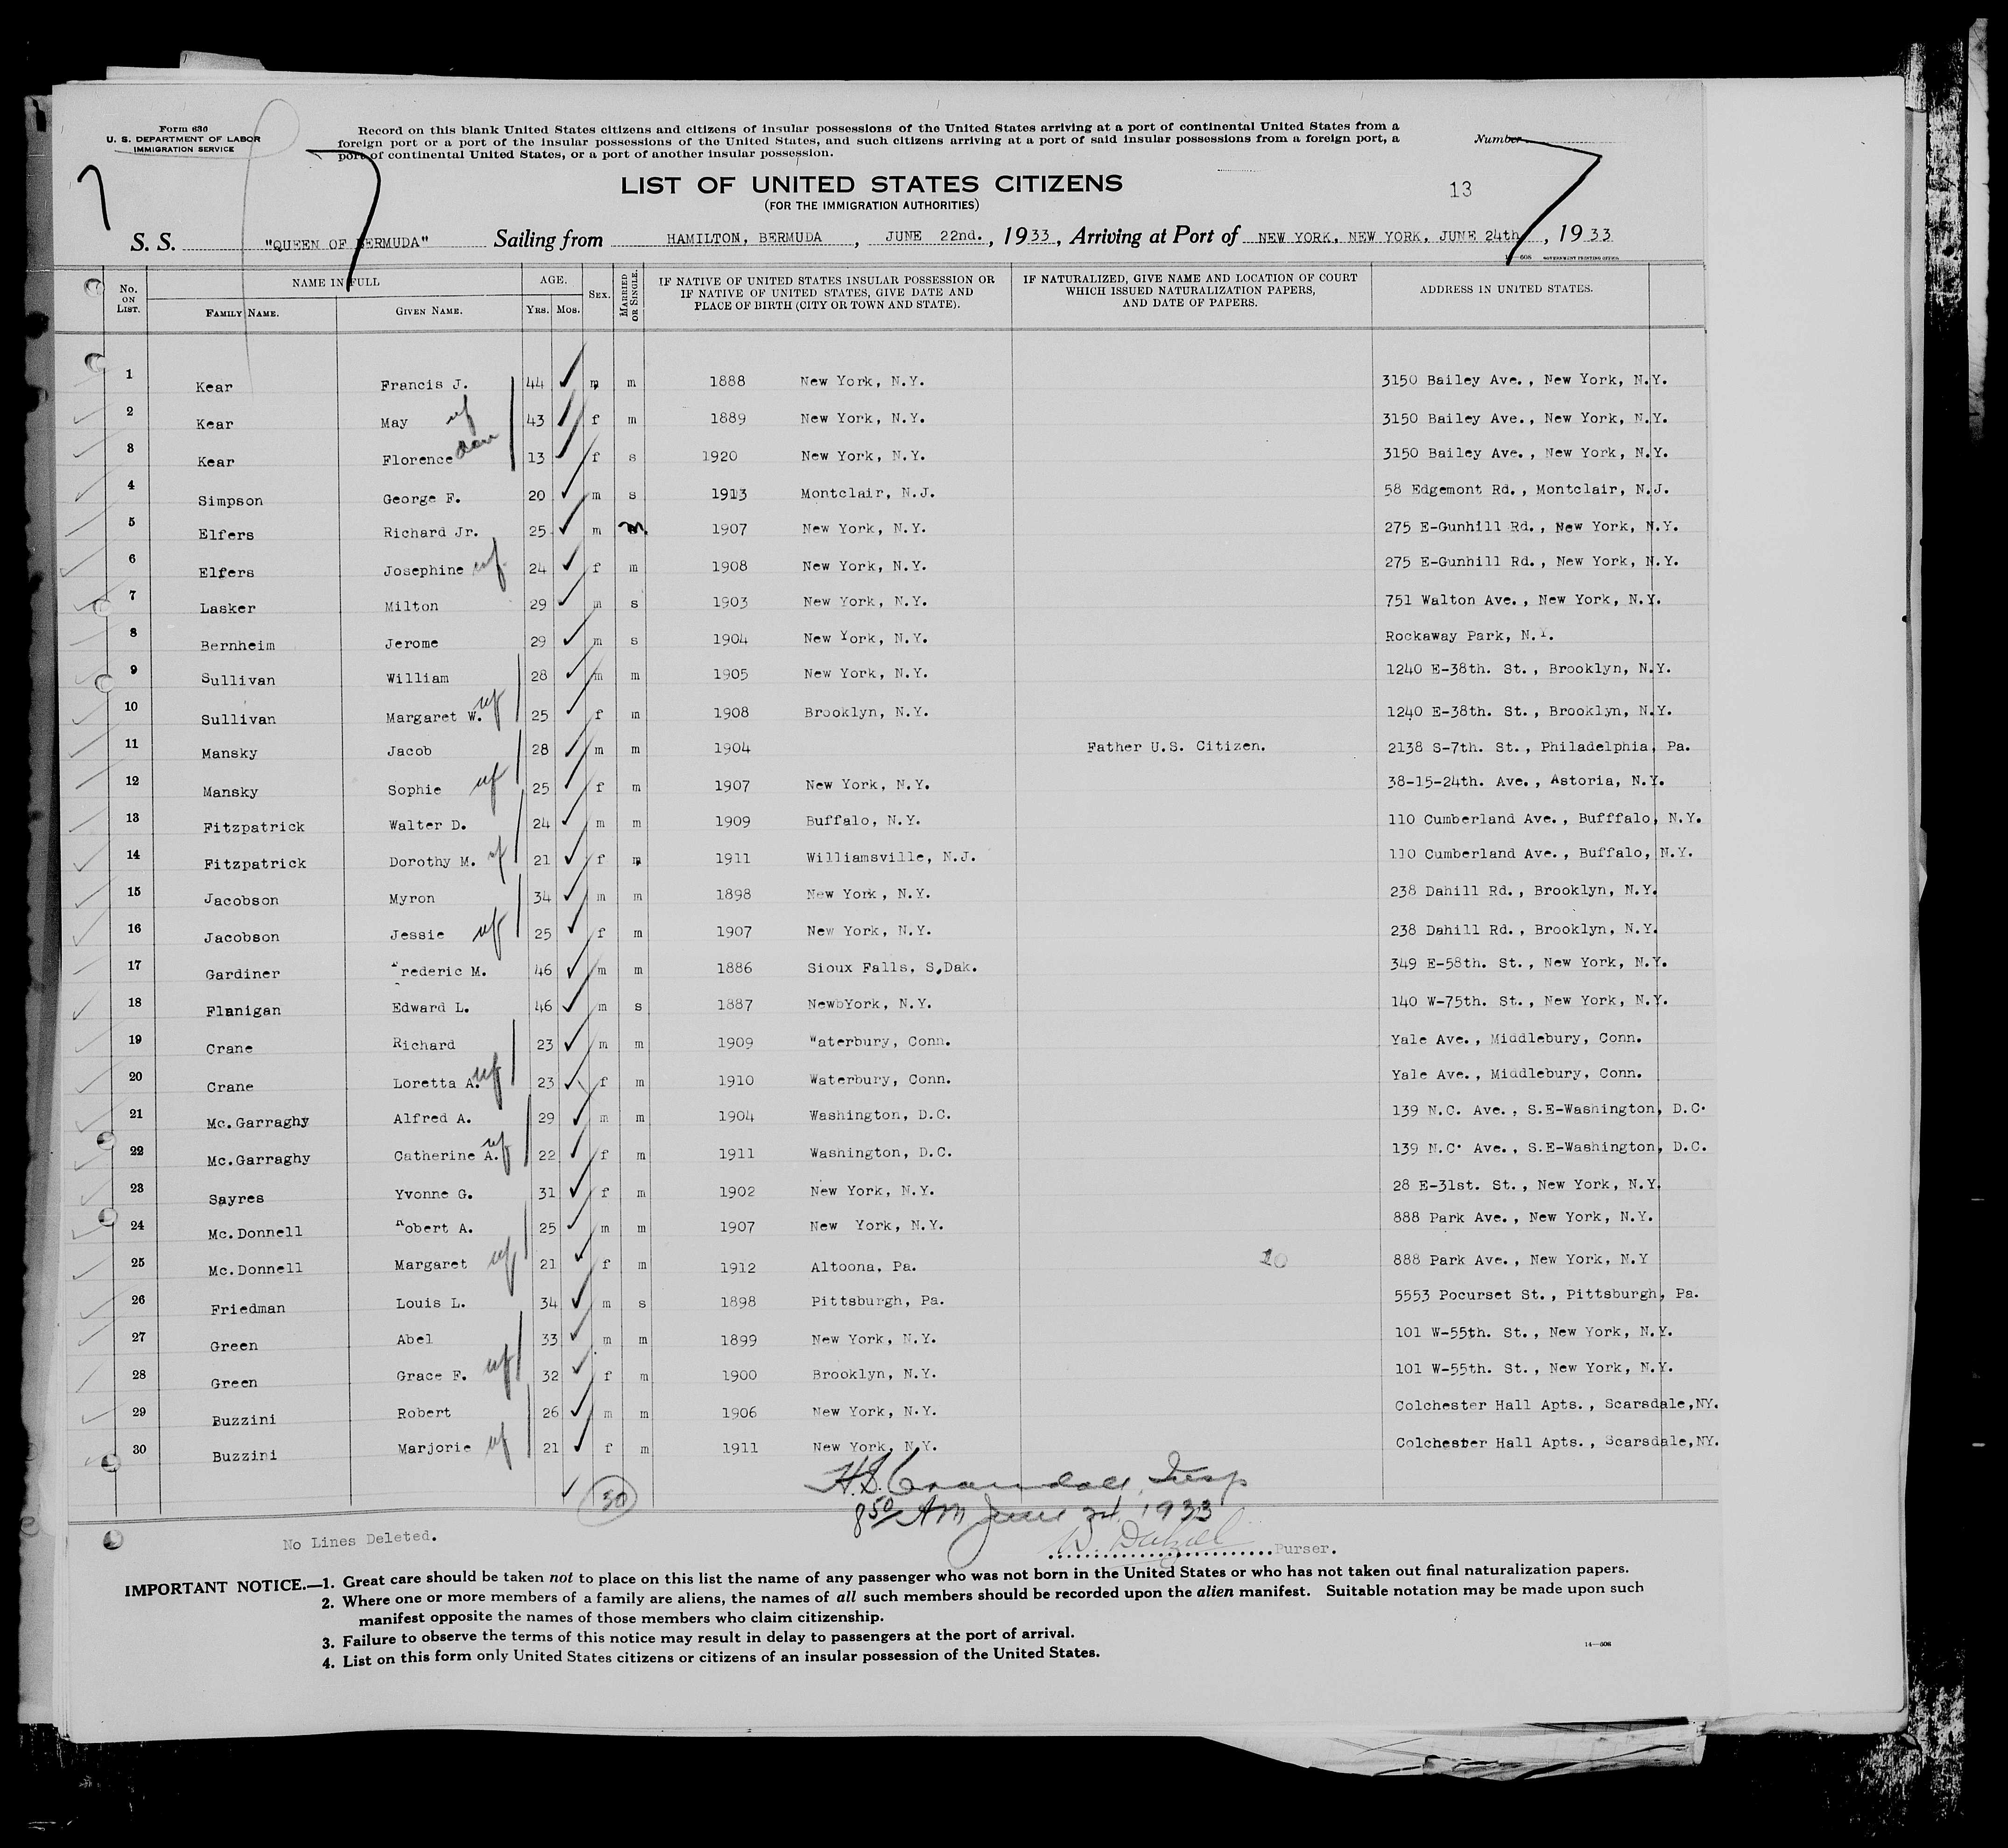 Form 630
U. S. DEPARTMENT OF LABOR
IMMIGRATION SERVICE
Record on this blank United States citizens and citizens of insular possessions of the United States arriving at a port of continental United States from a
foreign port or a port of the insular possessions of the United States, and such citizens arriving at a port of said insular possessions from a foreign port, a
port of continental United States, or a port of another insular possession.
Number
LIST OF UNITED STATES CITIZENS
(FOR THE IMMIGRATION AUTHORITIES)
13
S. S. "QUEEN OF BERMUDA" Sailing from HAMILTON, BERMUDA, JUNE 22nd., 1933, Arriving at Port of NEW YORK, NEW YORK, JUNE 24th, 1933
GOVERNMENT PRINTING OFFICE
No. ON LIST. NAME IN FULL FAMILY NAME. GIVEN NAME. AGE. YRS. MOS. SEX. MARRIED OR SINGLE. IF NATIVE OF UNITED STATES INSULAR POSSESSION OR IF NATIVE OF UNITED STATES, GIVE DATE AND PLACE OF BIRTH (CITY OR TOWN AND STATE). IF NATURALIZED, GIVE NAME AND LOCATION OF COURT WHICH ISSUED NATURALIZATION PAPERS, AND DATE OF PAPERS. ADDRESS IN UNITED STATES.
1 Kear Francis J. 44 m m 1888 New York, N.Y. 3150 Bailey Ave., New York, N.Y.
2 Kear May wf 43 f m 1889 New York, N.Y. 3150 Bailey Ave., New York, N.Y.
3 Kear Florence dau 13 f s 1920 New York, N.Y. 3150 Bailey Ave., New York, N.Y.
4 Simpson George F. 20 m s 1913 Montclair, N.J. 58 Edgemont Rd., Montclair, N.J.
5 Elfers Richard Jr. 25 m m 1907 New York, N.Y. 275 E-Gunhill Rd., New York, N.Y.
6 Elfers Josephine wf 24 f m 1908 New York, N.Y. 275 E-Gunhill Rd., New York, N.Y.
7 Lasker Milton 29 m s 1903 New York, N.Y. 751 Walton Ave., New York, N.Y.
8 Bernheim Jerome 29 m s 1904 New York, N.Y. Rockaway Park, N.Y.
9 Sullivan William 28 m m 1905 New York, N.Y. 1240 E-38th. St., Brooklyn, N.Y.
10 Sullivan Margaret W. wf 25 f m 1908 Brooklyn, N.Y. 1240 E-38th. St., Brooklyn, N.Y.
11 Mansky Jacob 28 m m 1904 Father U.S. Citizen. 2138 S-7th. St., Philadelphia, Pa.
12 Mansky Sophie wf 25 f m 1907 New York, N.Y. 38-15-24th. Ave., Astoria, N.Y.
13 Fitzpatrick Walter D. 24 m m 1909 Buffalo, N.Y. 110 Cumberland Ave., Bufffalo, N.Y.
14 Fitzpatrick Dorothy M. wf 21 f m 1911 Williamsville, N.J. 110 Cumberland Ave., Buffalo, N.Y.
15 Jacobson Myron 34 m m 1898 New York, N.Y. 238 Dahill Rd., Brooklyn, N.Y.
16 Jacobson Jessie wf 25 f m 1907 New York, N.Y. 238 Dahill Rd., Brooklyn, N.Y.
17 Gardiner Frederic M. 46 m m 1886 Sioux Falls, S.Dak. 349 E-58th. St., New York, N.Y.
18 Flanigan Edward L. 46 m s 1887 NewbYork, N.Y. 140 W-75th. St., New York, N.Y.
19 Crane Richard 23 m m 1909 Waterbury, Conn. Yale Ave., Middlebury, Conn.
20 Crane Loretta A. wf 23 f m 1910 Waterbury, Conn. Yale Ave., Middlebury, Conn.
21 Mc.Garraghy Alfred A. 29 m m 1904 Washington, D.C. 139 N.C. Ave., S.E-Washington, D.C.
22 Mc.Garraghy Catherine A. wf 22 f m 1911 Washington, D.C. 139 N.C. Ave., S.E-Washington, D.C.
23 Sayres Yvonne G. 31 f m 1902 New York, N.Y. 28 E-31st. St., New York, N.Y.
24 Mc.Donnell Robert A. 25 m m 1907 New York, N.Y. 888 Park Ave., New York, N.Y.
25 Mc.Donnell Margaret wf 21 f m 1912 Altoona, Pa. 20 888 Park Ave., New York, N.Y
26 Friedman Louis L. 34 m s 1898 Pittsburgh, Pa. 5553 Pocurset St., Pittsburgh, Pa.
27 Green Abel 33 m m 1899 New York, N.Y. 101 W-55th. St., New York, N.Y.
28 Green Grace F. wf 32 f m 1900 Brooklyn, N.Y. 101 W-55th. St., New York, N.Y.
29 Buzzini Robert 26 m m 1906 New York, N.Y. Colchester Hall Apts., Scarsdale,NY.
30 Buzzini Marjorie wf 21 f m 1911 New York, N.Y. Colchester Hall Apts., Scarsdale,NY.
30
H.S. Crandall, Insp
8 50 AM June 24, 1933
No Lines Deleted.
Purser.
IMPORTANT NOTICE.—1. Great care should be taken not to place on this list the name of any passenger who was not born in the United States or who has not taken out final naturalization papers.
2. Where one or more members of a family are aliens, the names of all such members should be recorded upon the alien manifest. Suitable notation may be made upon such
manifest opposite the names of those members who claim citizenship.
3. Failure to observe the terms of this notice may result in delay to passengers at the port of arrival.
4. List on this form only United States citizens or citizens of an insular possession of the United States.
14—608